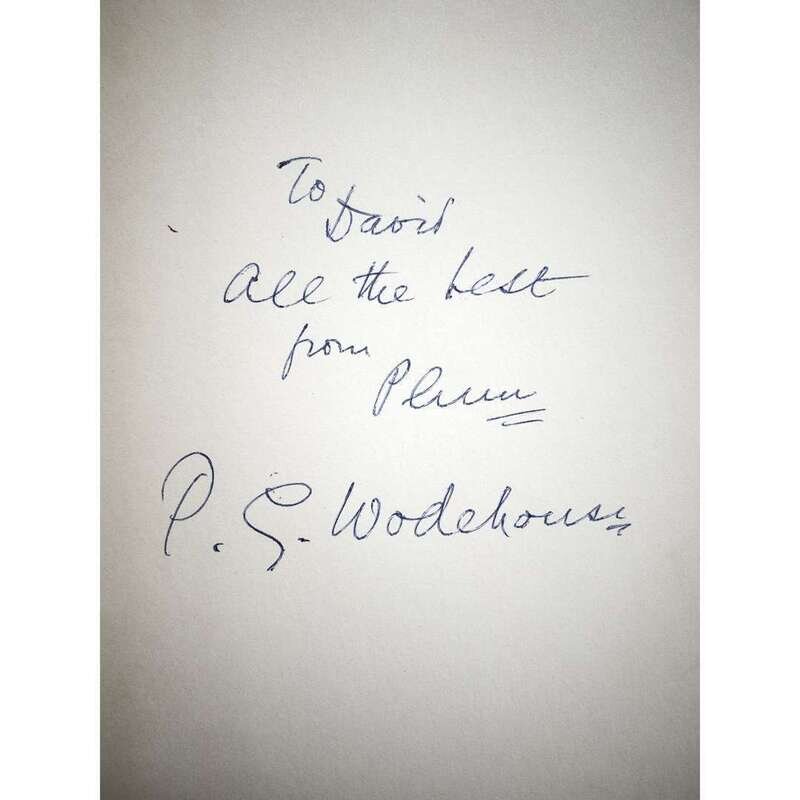 To
David
All the best
from
Plum
P. G. Wodehouse